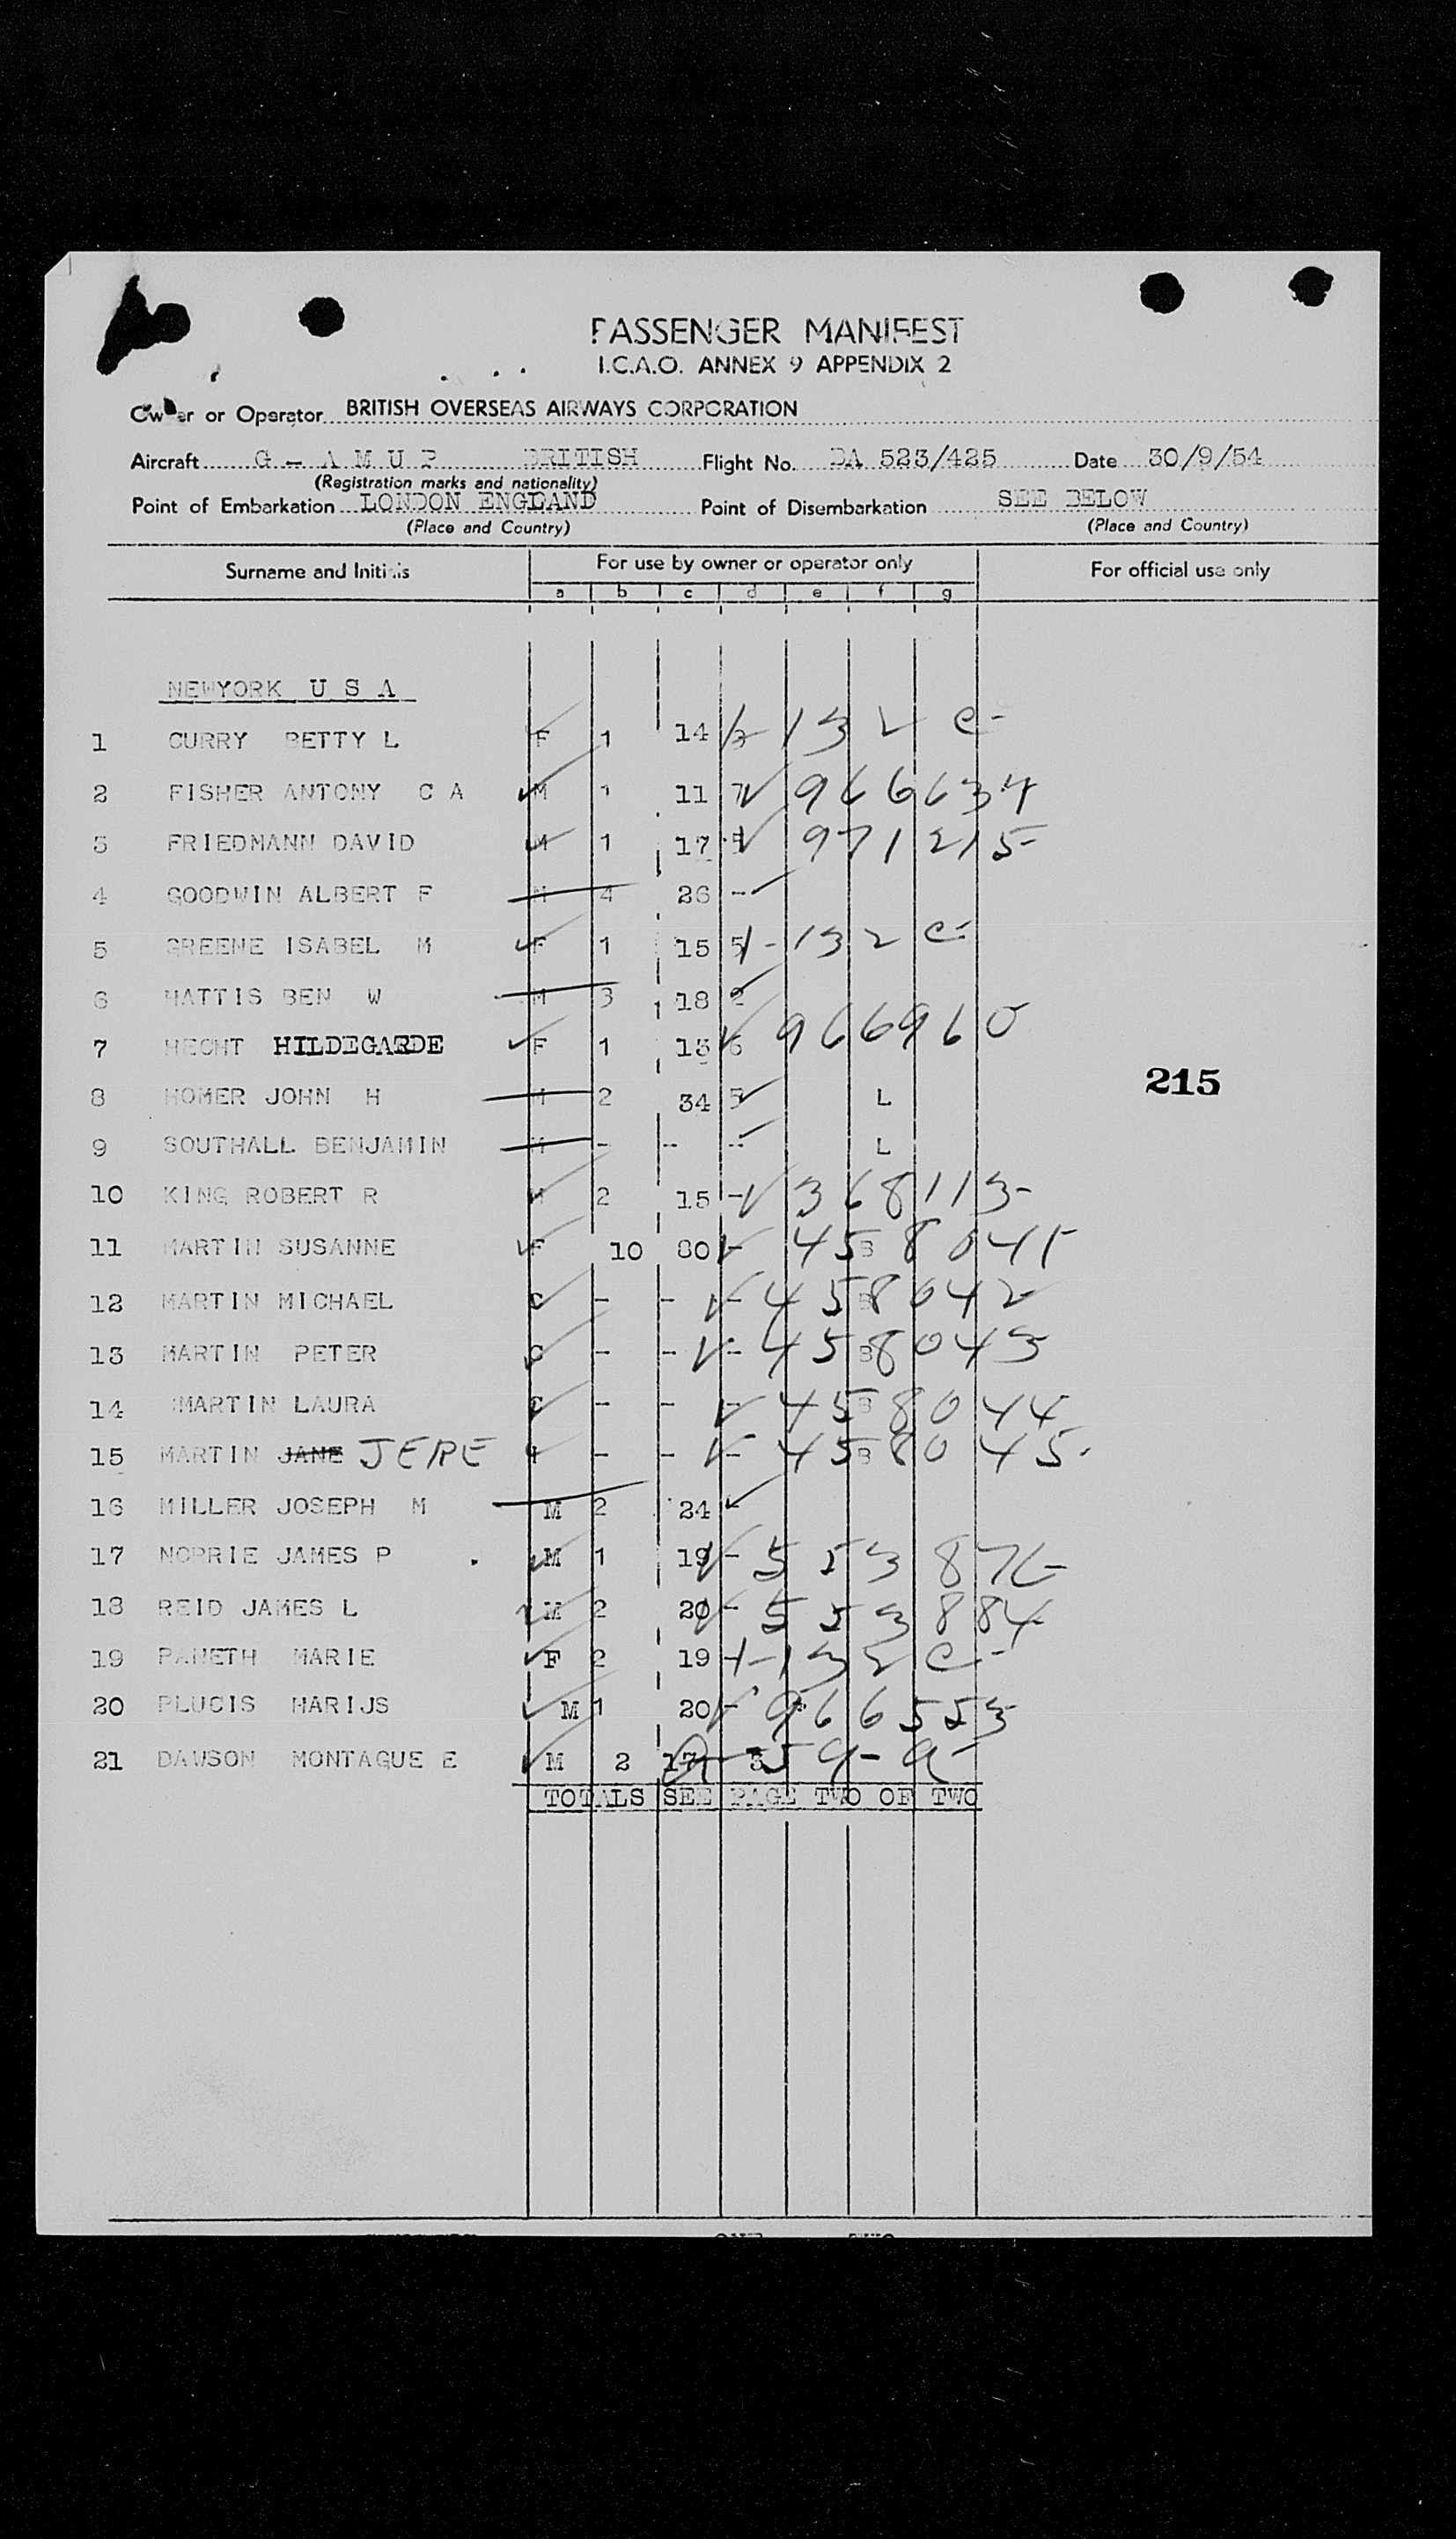 PASSENGER MANIFEST
I.C.A.O. ANNEX 9 APPENDIX 2
Owner or Operator BRITISH OVERSEAS AIRWAYS CORPORATION
Aircraft G - A M U P BRITISH Flight No. BA 523/425 Date 30/9/54
(Registration marks and nationality)
Point of Embarkation LONDON ENGLAND Point of Disembarkation SEE BELOW
(Place and Country) (Place and Country)
Surname and Initials For use by owner or operator only For official use only
a b c d e f g
NEWYORK U S A
1 CURRY BETTY L F 1 14 132 e-
2 FISHER ANTONY C A M 1 11 7 966634
3 FRIEDMANN DAVID M 1 17 971215
4 GOODWIN ALBERT F M 4 26 -
5 GREENE ISABEL M F 1 15 5 132 e-
6 MATTIS BEN W M 3 18 2
7 HECHT HILDEGARDE F 1 13 6 966960
8 HOMER JOHN H M 2 34 5 L
215
9 SOUTHALL BENJAMIN M - -- -- L
10 KING ROBERT R M 2 15 - 368113
11 MARTIN SUSANNE F 10 80 - B 458041
12 MARTIN MICHAEL C - - - B 458042
13 MARTIN PETER C - - - B 458043
14 MARTIN LAURA C - - - B 458044
15 MARTIN JANE JERE - - - B 458045
16 MILLER JOSEPH M M 2 24
17 NORRIE JAMES P M 1 19 - 553876
18 REID JAMES L M 2 20 - 553884
19 PANETH MARIE F 2 19 132 e-
20 PLUCIS MARIJS M 1 20 - 966553
21 DAWSON MONTAGUE E M 2 17 3 59-a
TOTALS SEE PAGE TWO OF TWO